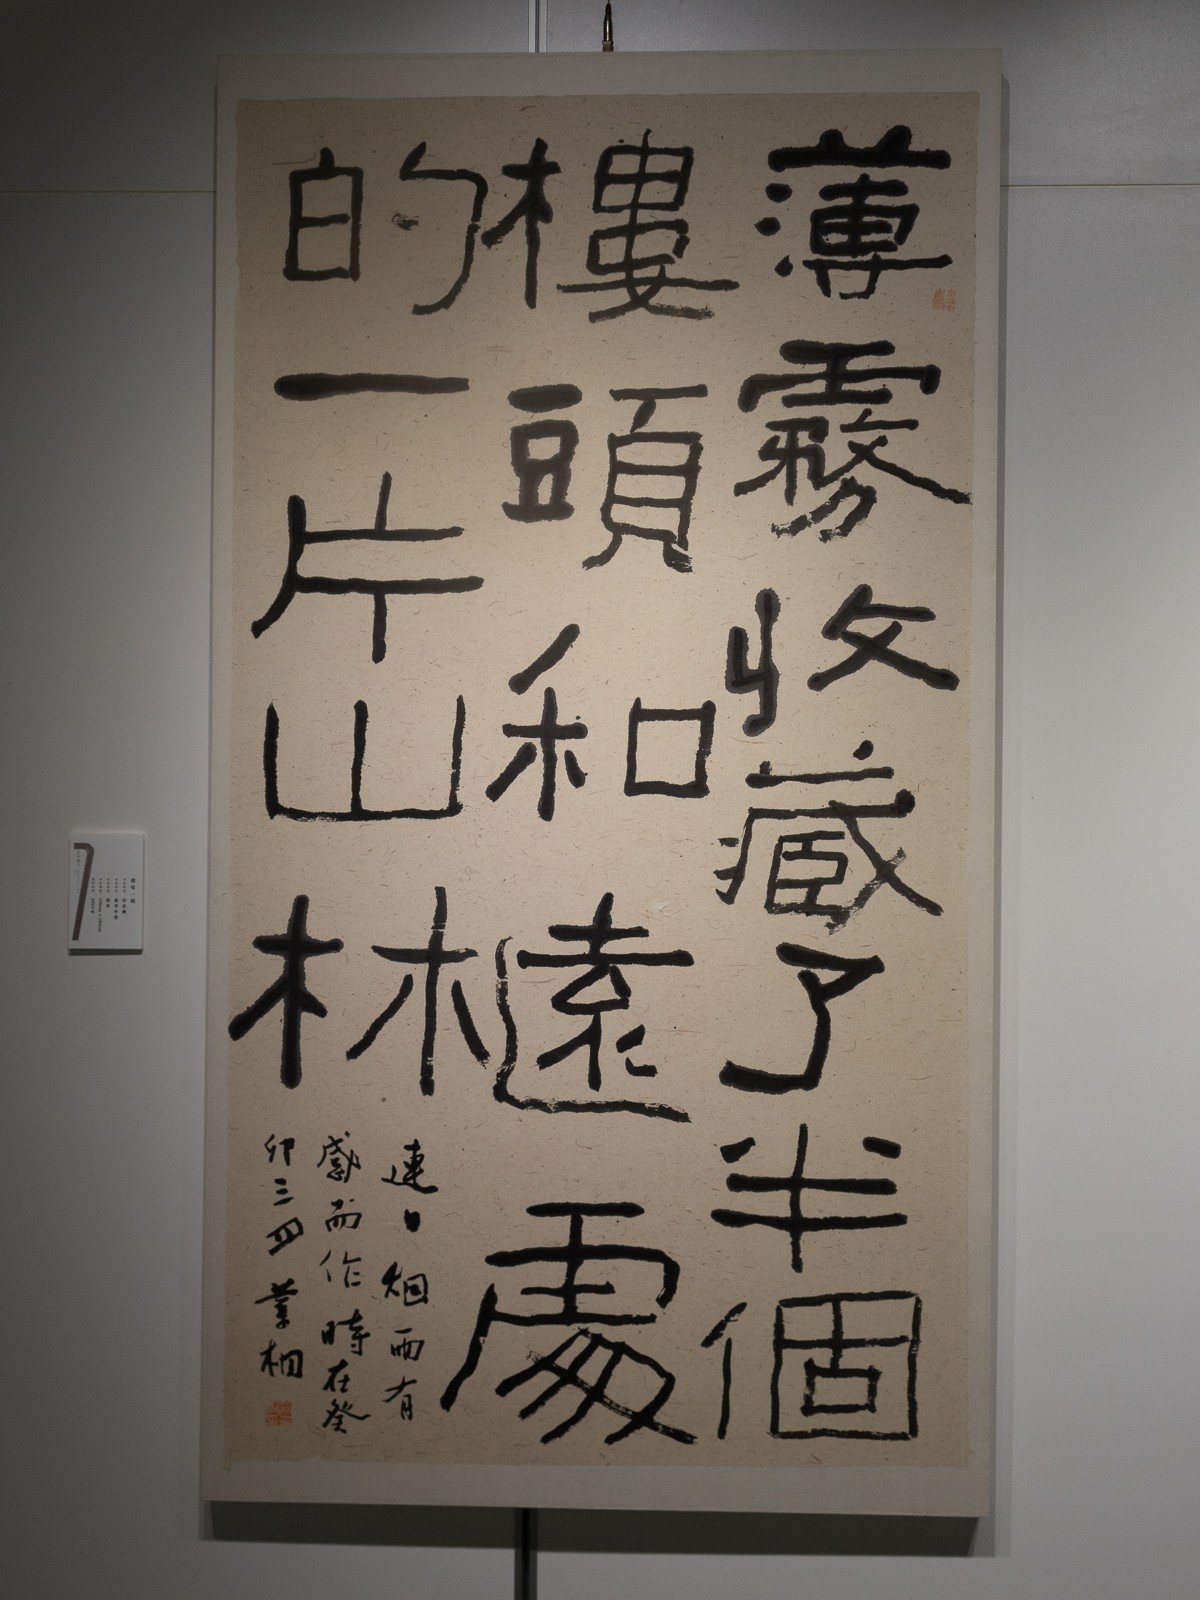 薄霧收藏了半個
樓頭和遠處
的一片山林
連日烟雨有
感而作時在癸
卯三四葉桐